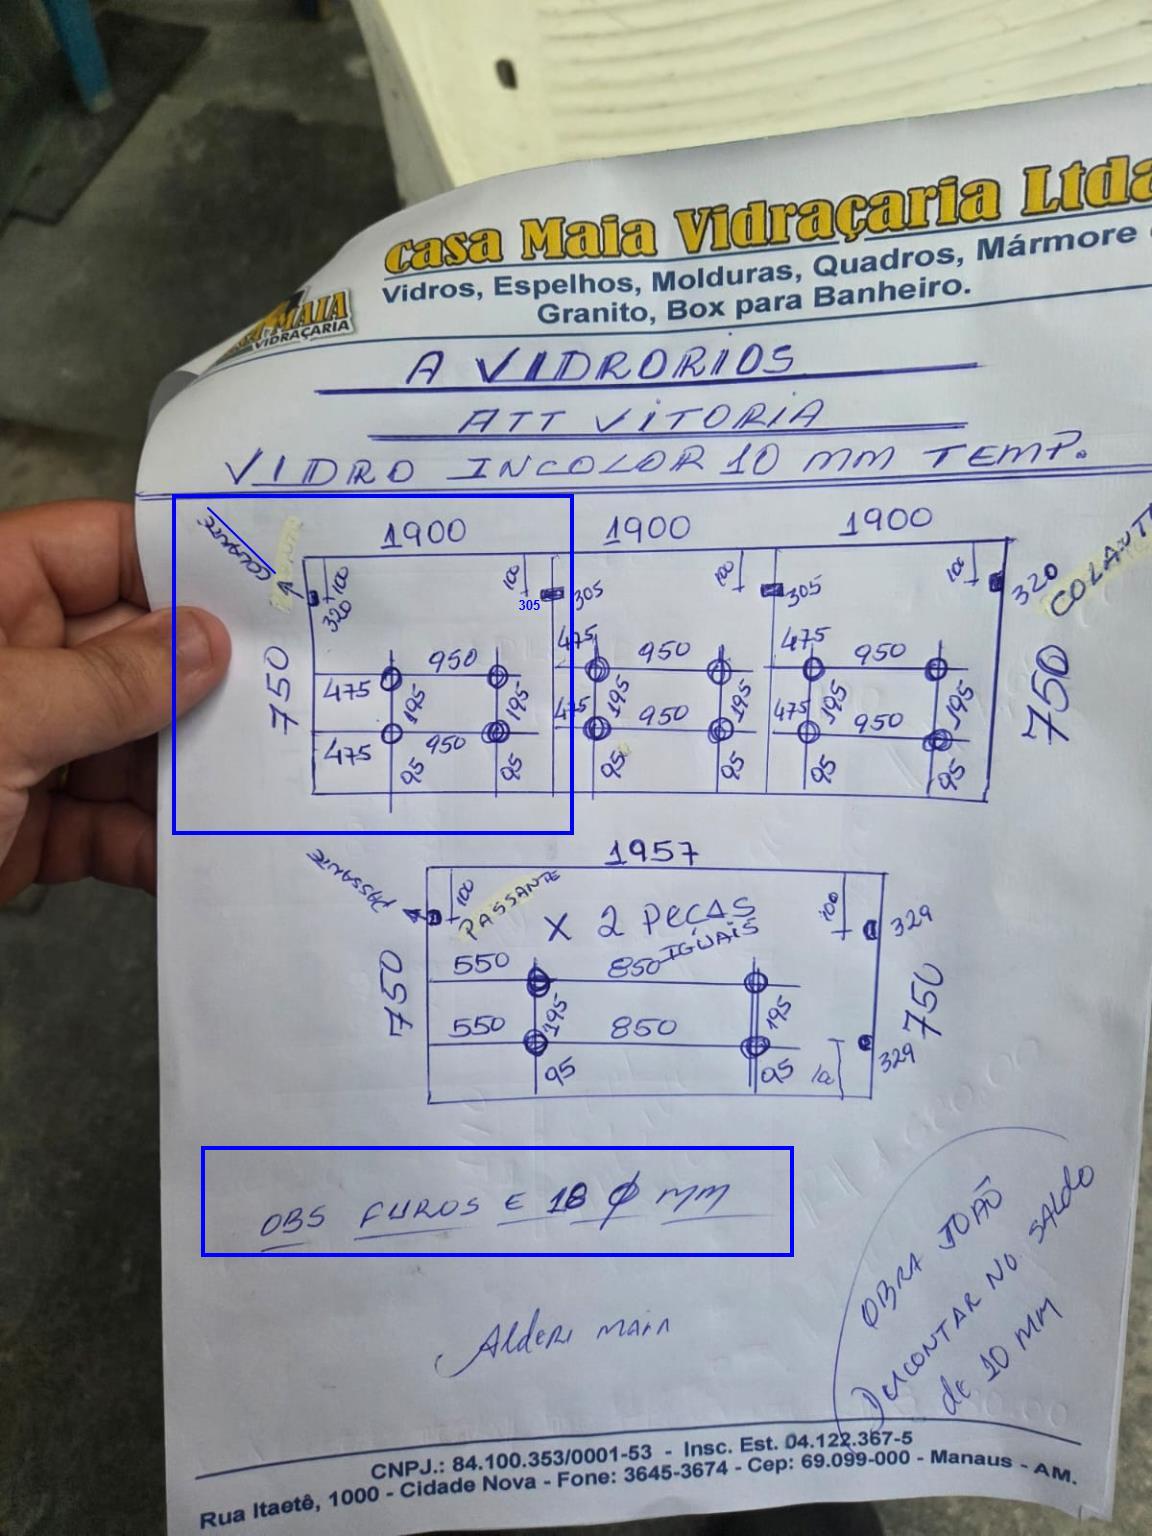 Casa Maia Vidraçaria Ltda
Vidros, Espelhos, Molduras, Quadros, Mármore
Granito, Box para Banheiro.
MAIA
VIDRAÇARIA
A VIDRORIOS
ATT VITORIA
VIDRO INCOLOR 10 MM TEMP.
COLANTE
1900 1900 1900
100 100 100 100
320 305 305 305 320 COLANTE
750 750
475 950 195 195
475 950 95 95
475 950 195 195
475 950 95 95
475 950 195 195
475 950 95 95
1957
PASSANTE
100 PASSANTE 100 329
X 2 PEÇAS
IGUAIS
750 750
550 850 195 195
550 850 329
95 95
OBS FUROS E 18 Ø MM
OBRA JOÃO
DESCONTAR NO SALDO
de 10 MM
Alderi maia
CNPJ.: 84.100.353/0001-53 - Insc. Est. 04.122.367-5
Rua Itaetê, 1000 - Cidade Nova - Fone: 3645-3674 - Cep: 69.099-000 - Manaus - AM.